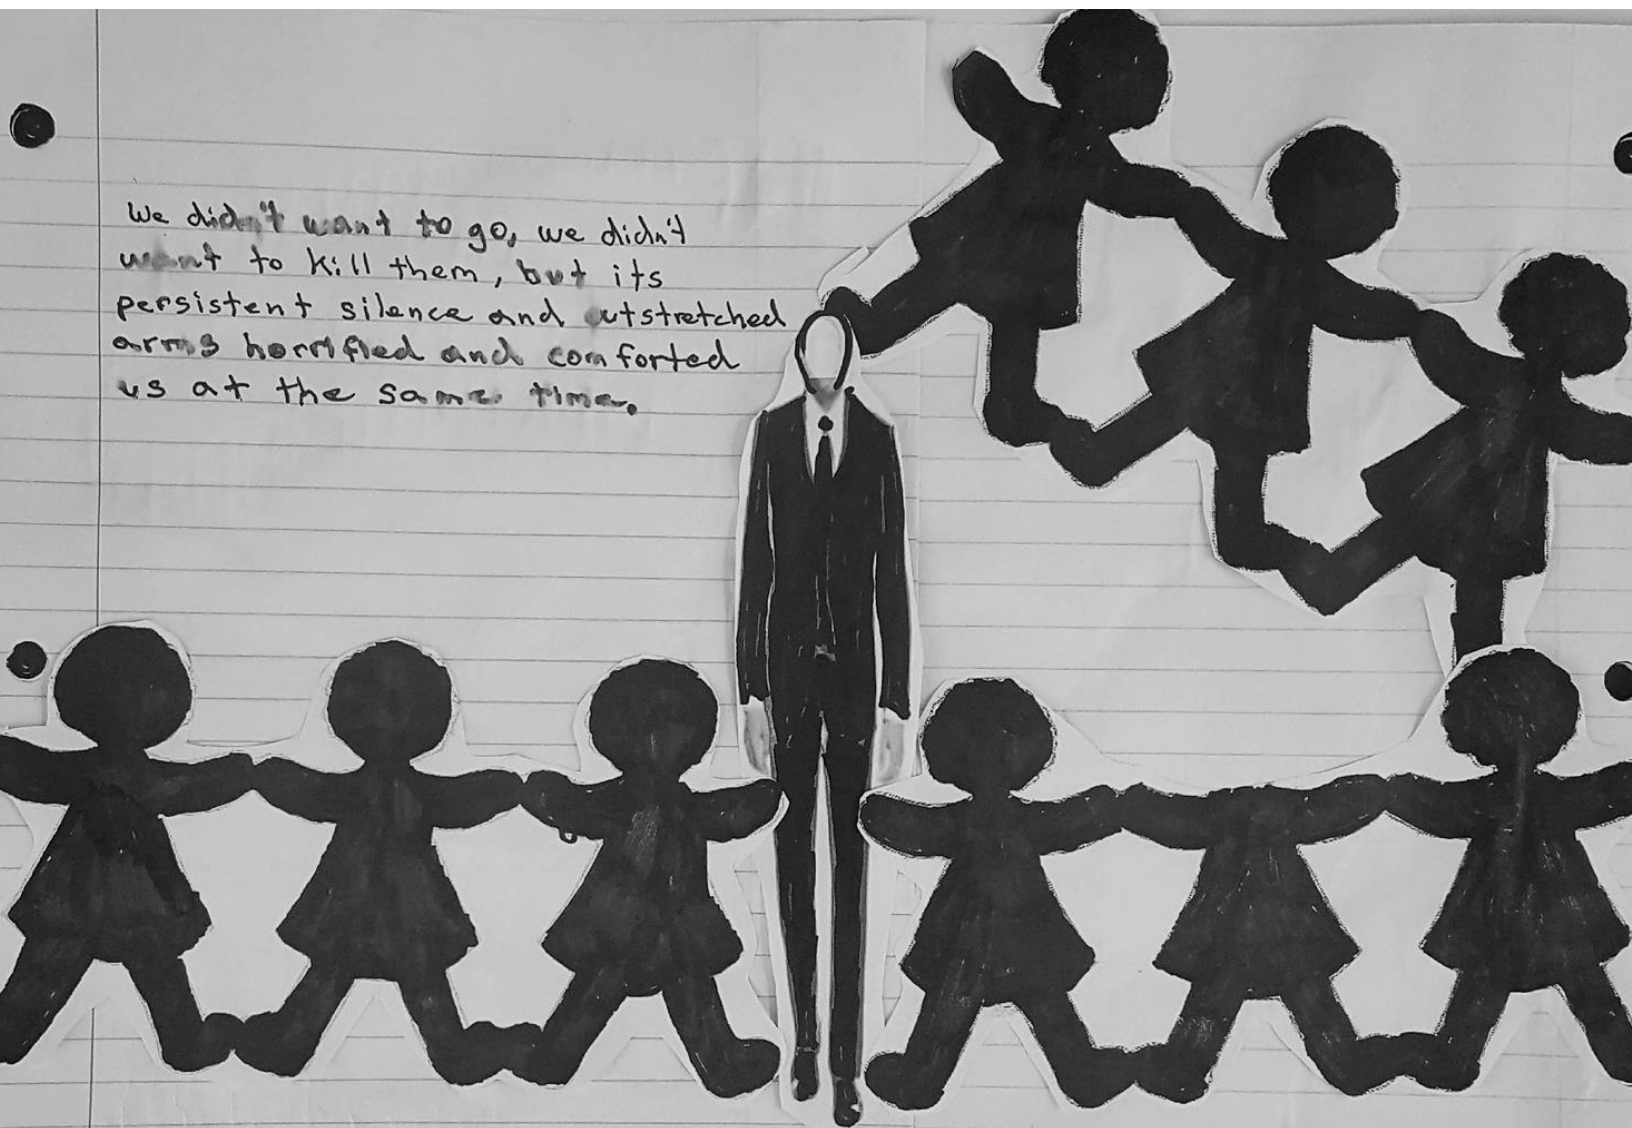 We didn't want to go, we didn't
want to kill them, but its
persistent silence and outstretched
arms horrified and comforted
us at the same time.